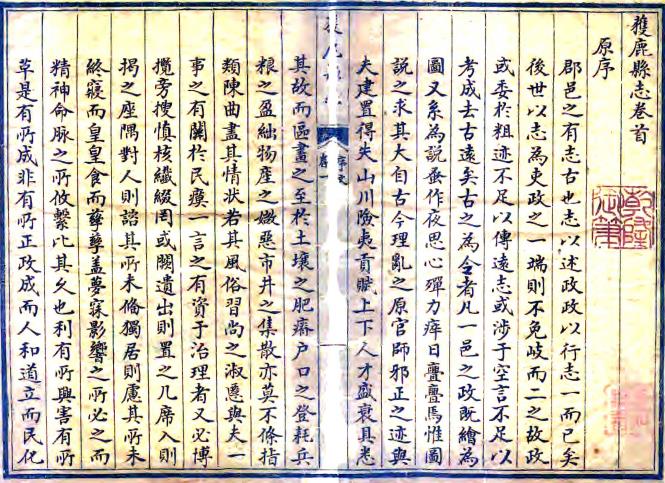 獲鹿縣志卷首
原序
郡邑之有志古也志以述政政以行志一而已矣
後世以志為吏政之一端則不免歧而二之故政
或委於粗迹不足以傳遠志或涉于空言不足以
考成去古遠矣古之為令者凡一邑之政既繪為
圖又系為說蚤作夜思心殫力瘁日亹亹焉惟圖
說之求其大自古今理亂之原官師邪正之迹與
夫建置得失山川險夷貢賦上下人才盛衰具悉
其故而區畫之至於土壤之肥瘠户口之登耗兵
粮之盈絀物產之媺惡市井之集散亦莫不條指
類陳曲盡其情狀若其風俗習尚之淑慝與夫一
事之有關於民瘼一言之有資于治理者又必博
攬旁搜慎核纖綴罔或闕遺出則置之几席入則
揭之座隅對人則諮其所未備獨居則慮其所未
終寢而皇皇食而孳孳盖夢寐影響之所必之而
精神命脉之所攸繫比其久也利有所興害有所
革是有所成非有所正政成而人和道立而民化